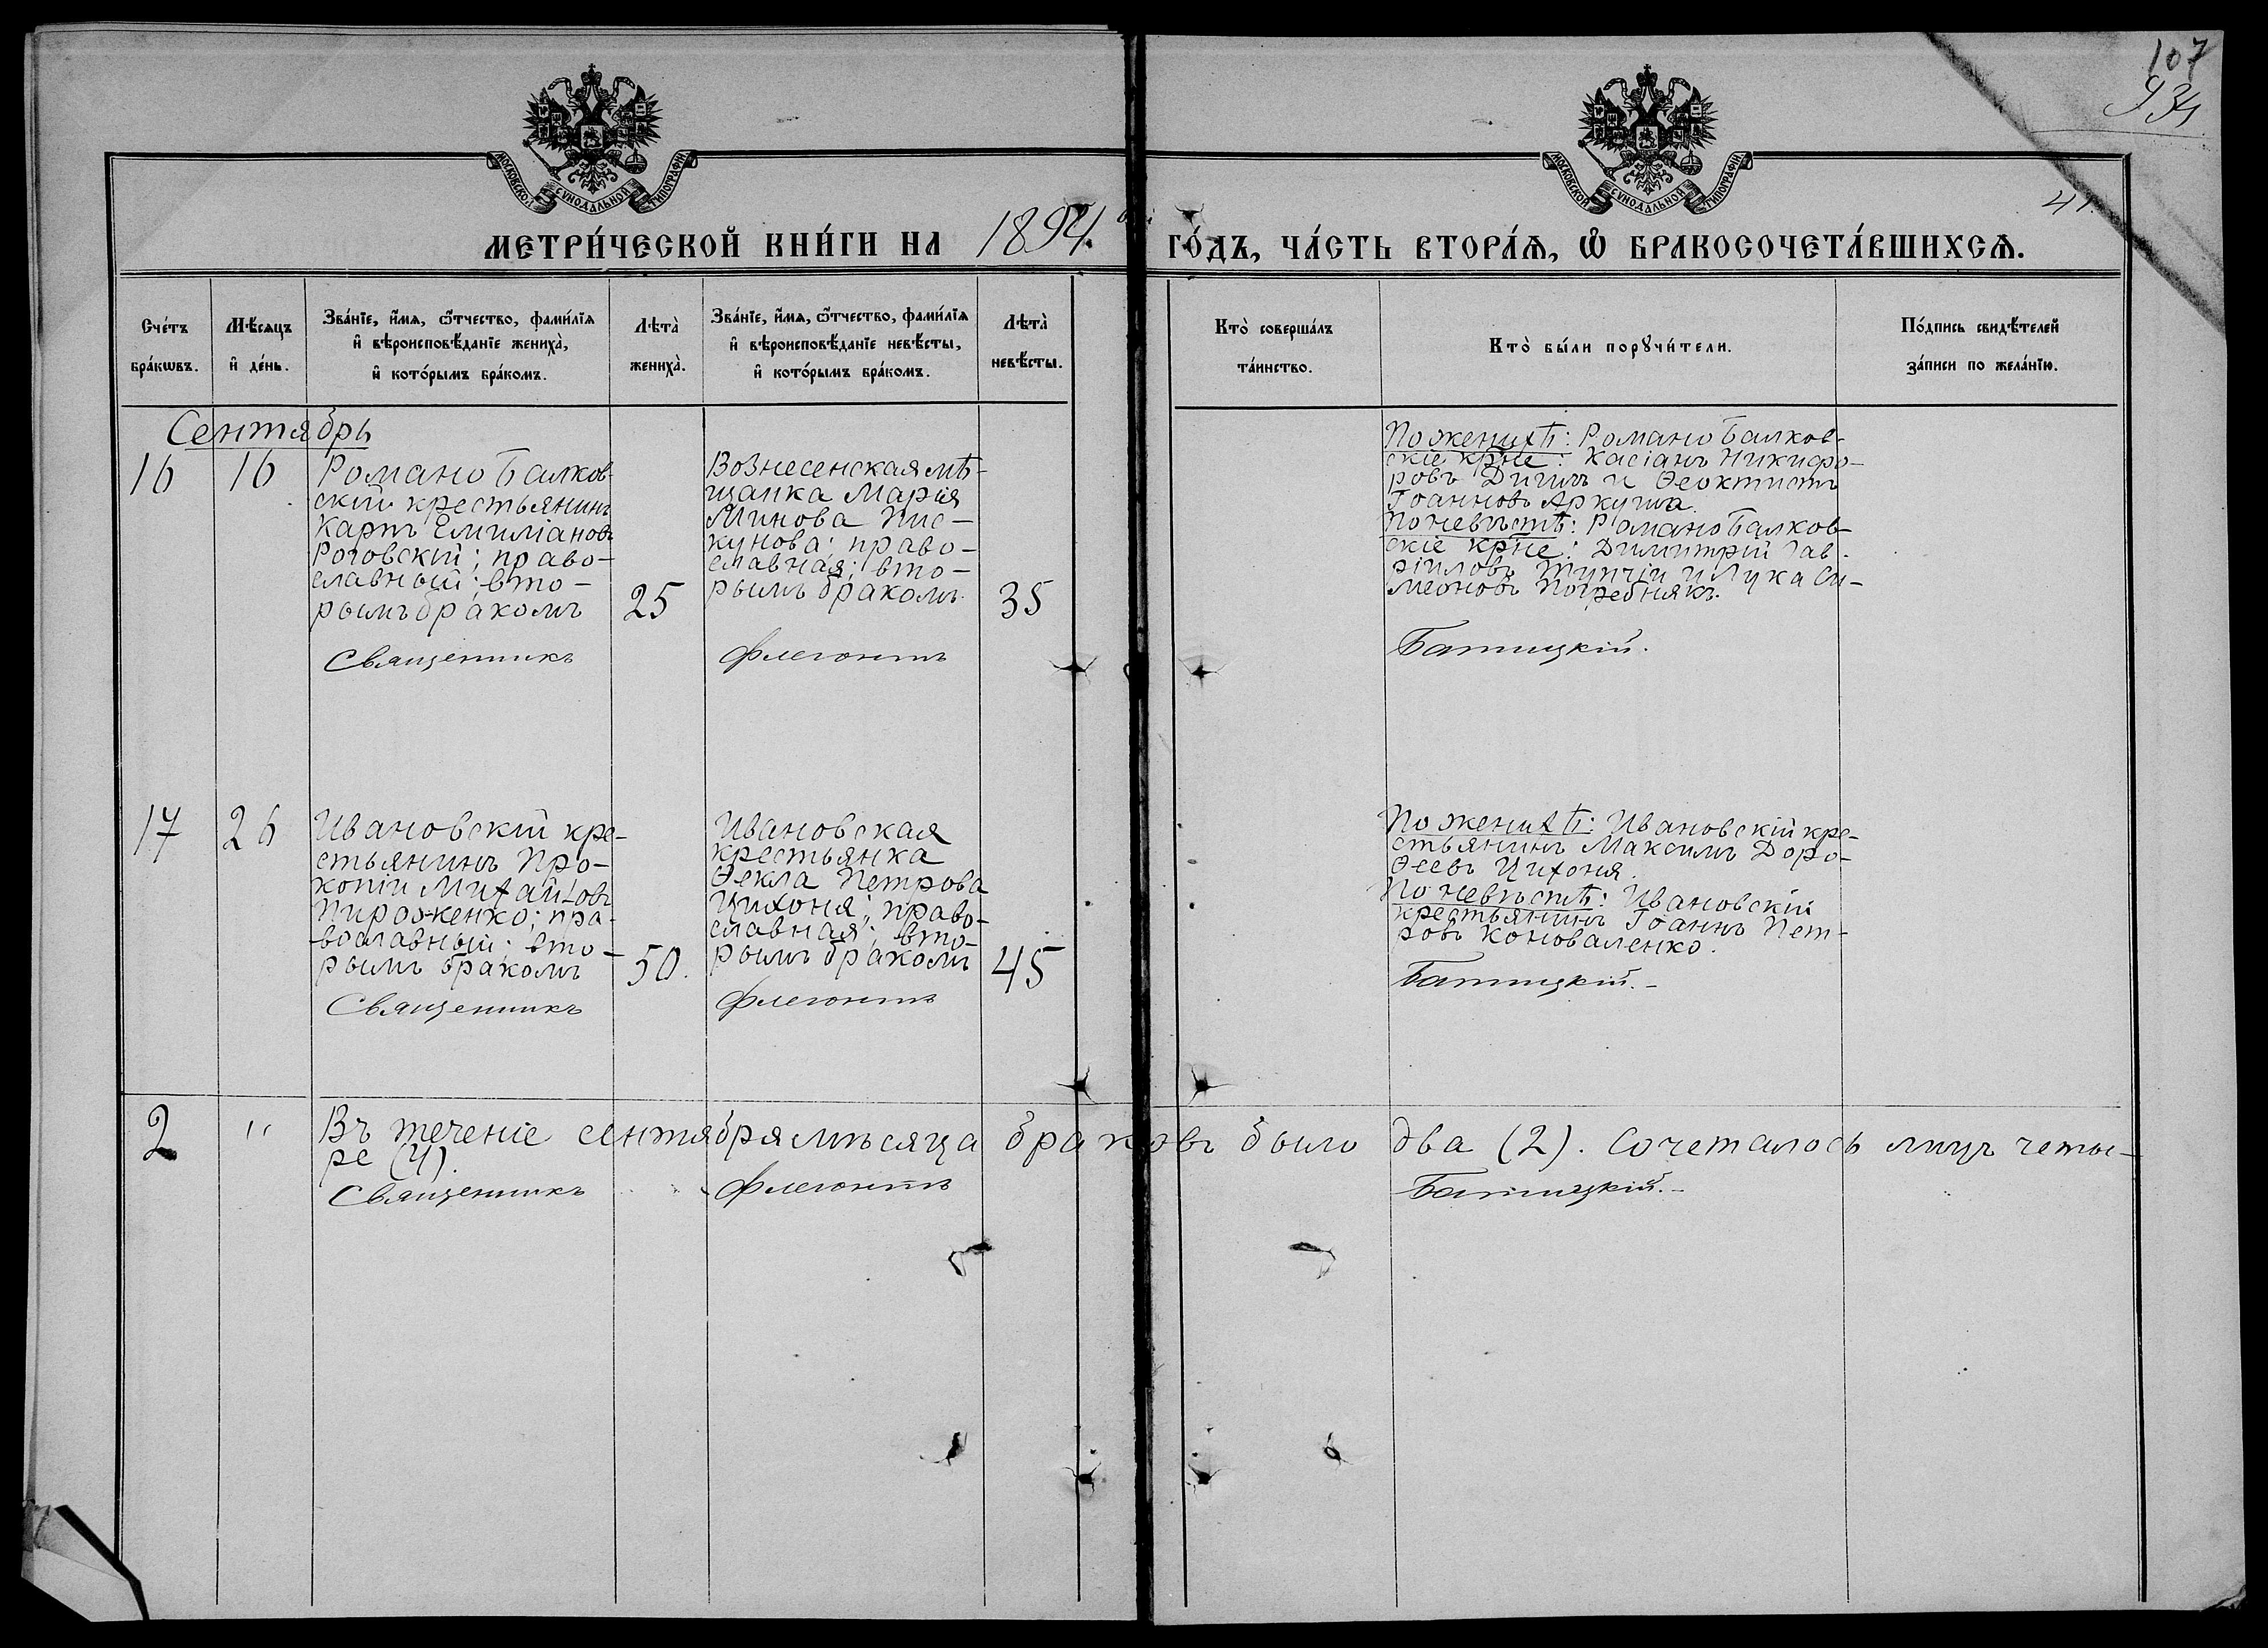 107
934
41.
МОСКОВСКОЙ СѴНОДАЛЬНОЙ ТИПОГРАФІИ
МОСКОВСКОЙ СѴНОДАЛЬНОЙ ТИПОГРАФІИ
МЕТРИ́ЧЕСКОЙ КНИ́ГИ НА 1894. ГО́ДЪ, ЧА́СТЬ ВТОРА́Ѧ, Ѡ БРАКОСОЧЕТА́ВШИХСѦ.
Сче́тъ
бра́кѡвъ.
Мѣ́сѧцъ
и҆ де́нь.
Зва́нїе, и҆́мѧ, ѻ҆́тчество, фами́лїѧ
и҆ вѣроисповѣ́данїе жениха̀,
и҆ кото́рымъ бра́комъ.
Лѣта̀
жениха̀.
Зва́нїе, и҆́мѧ, ѻ҆́тчество, фами́лїѧ
и҆ вѣроисповѣ́данїе невѣ́сты,
и҆ кото́рымъ бра́комъ.
Лѣта̀
невѣ́сты.
Кто̀ соверша́лъ
та́инство.
Кто̀ бы́ли порꙋчи́тели.
По́дпись свидѣ́телей
за́писи по жела́нїю.
Сентябрь
16
16
Романо Балков-
скій крестьянинъ
Карпъ Емиліановъ
Роговскій; право-
славный; вто-
рымъ бракомъ
25
Вознесенская мѣ-
щанка Марія
Минова Пис-
кунова; право-
славная; вто-
рымъ бракомъ.
35
По женихѣ: Романо Балков-
скіе кр̃не: Касіанъ Никифо-
ровъ Дигилъ и Ѳеоктистъ
Іоанновъ Аркуша.
По невѣстѣ: Романо Балков-
скіе кр̃не: Димитрій Гав-
ріиловъ Тупчіи и Лука Си-
меоновъ Погребнякъ.
Священникъ Флегонтъ Батицкій.
17
26
Ивановскій кре-
стьянинъ Про-
копіи Михайловъ
Пироженко; пра-
вославный; вто-
рымъ бракомъ
50.
Ивановская
крестьянка
Ѳекла Петрова
Цихоня; право-
славная; вто-
рымъ бракомъ
45
По женихѣ: Ивановскій кре-
стьянинъ Максимъ Доро-
ѳеевъ Цихоня.
По невѣстѣ: Ивановскій
крестьянинъ Іоаннъ Пет-
ровъ Коноваленко.
Священникъ Флегонтъ Батицкій.-
2 " Въ теченіе сентября мѣсяца браковъ было два (2). Сочеталось лицъ четы-
ре (4).
Священникъ Флегонтъ Батицкій.-